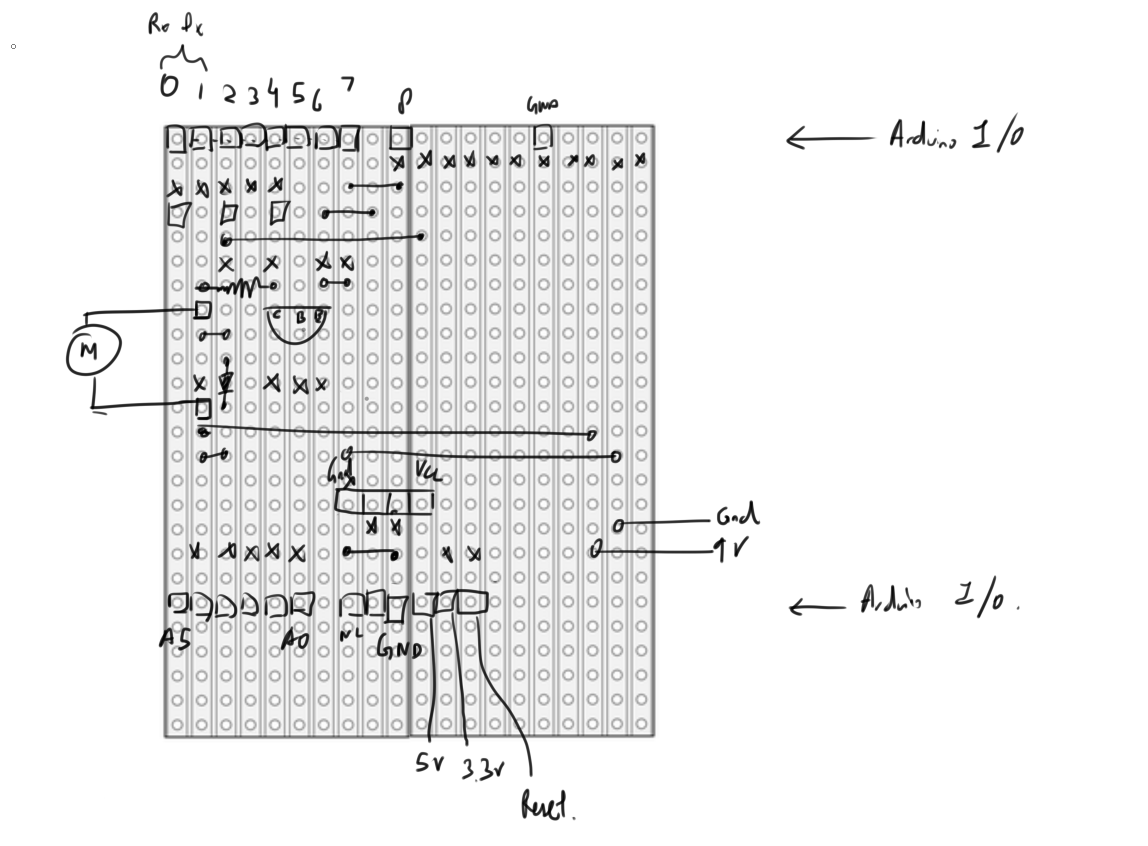 0 1 2 3 4 5 6 7
GND
Arduino I/O
C B
M
Gnd
Gnd
9V
Arduino I/O.
A5 A0 GND
5V 3.3V
Reset.